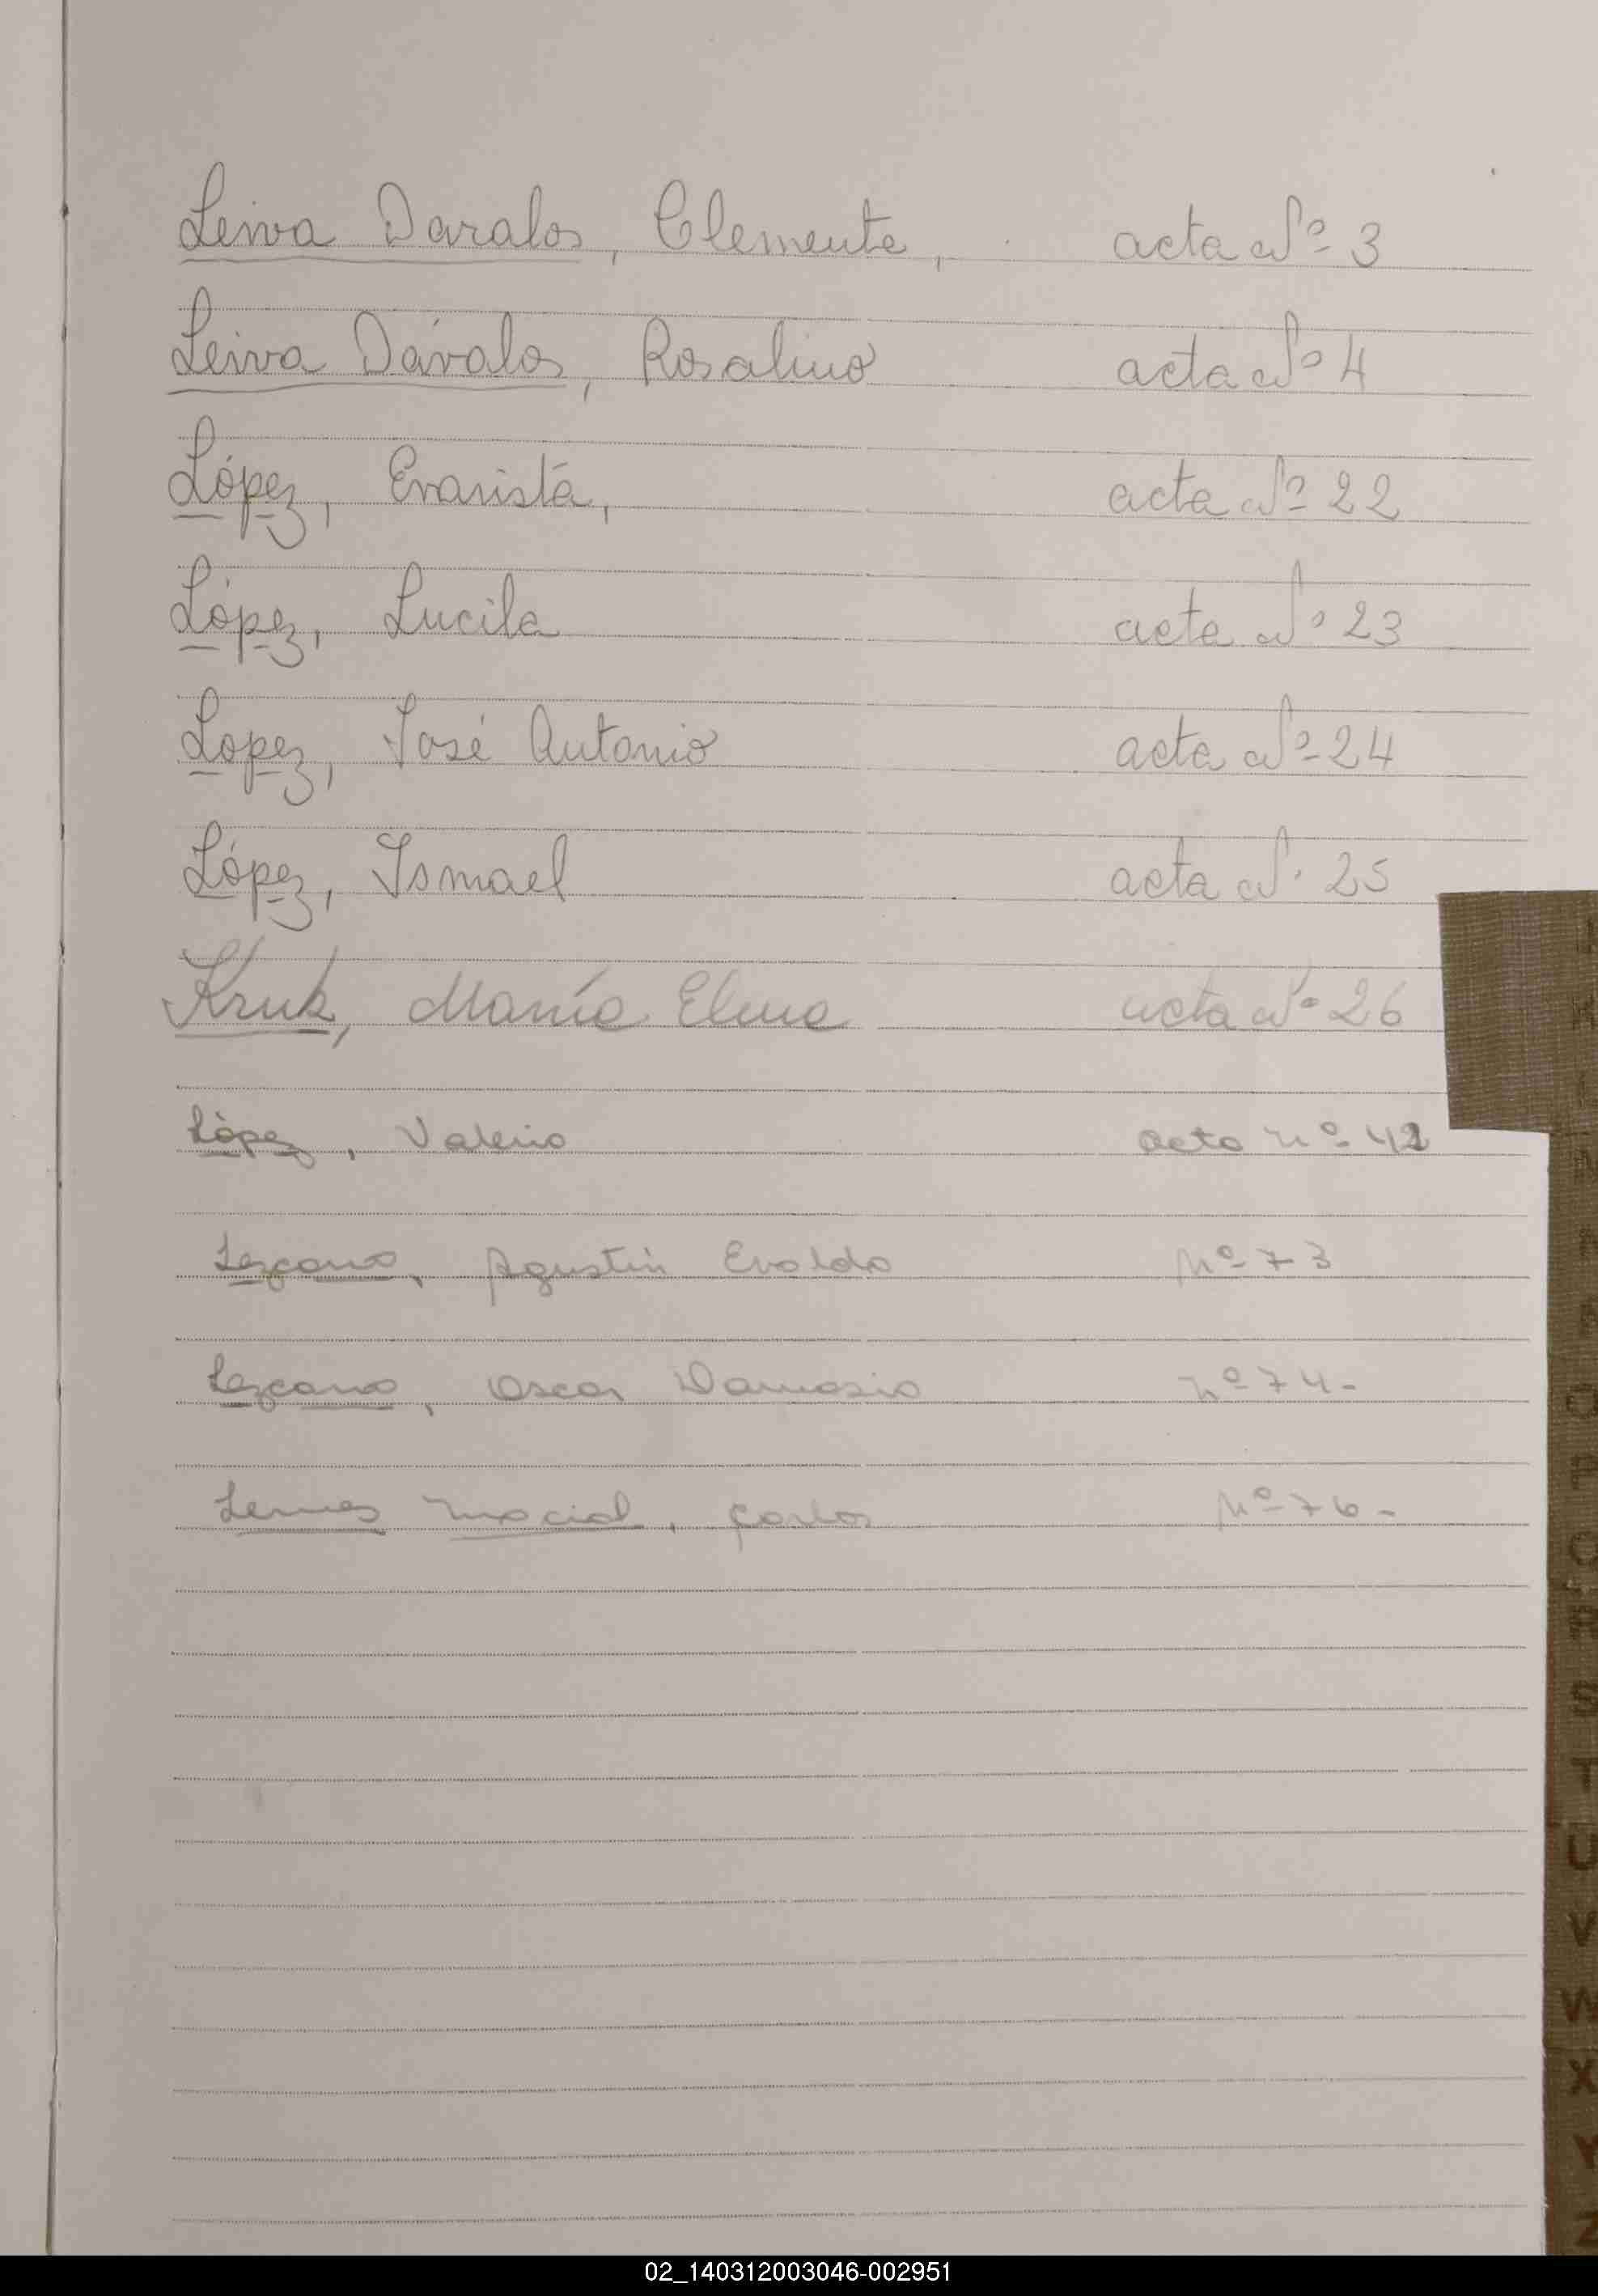 Leiva Davalos, Clemente, acta Nº 3
Leiva Dávalos, Rosalino acta Nº 4
López, Evarista, acta Nº 22
López, Lucila acta Nº 23
Lopez, José Antonio acta Nº 24
López, Ismael acta N· 25
Kruk, María Elena acta Nº 26
López, Valerio acta nº 42
Lezcano, Agustín Evaldo Nº 73
Lezcano, Oscar Damasio nº 74-
Lemes Macial, Carlos Nº 76-
Q
R
S
T
U
V
W
X
Y
Z
02_140312003046-002951